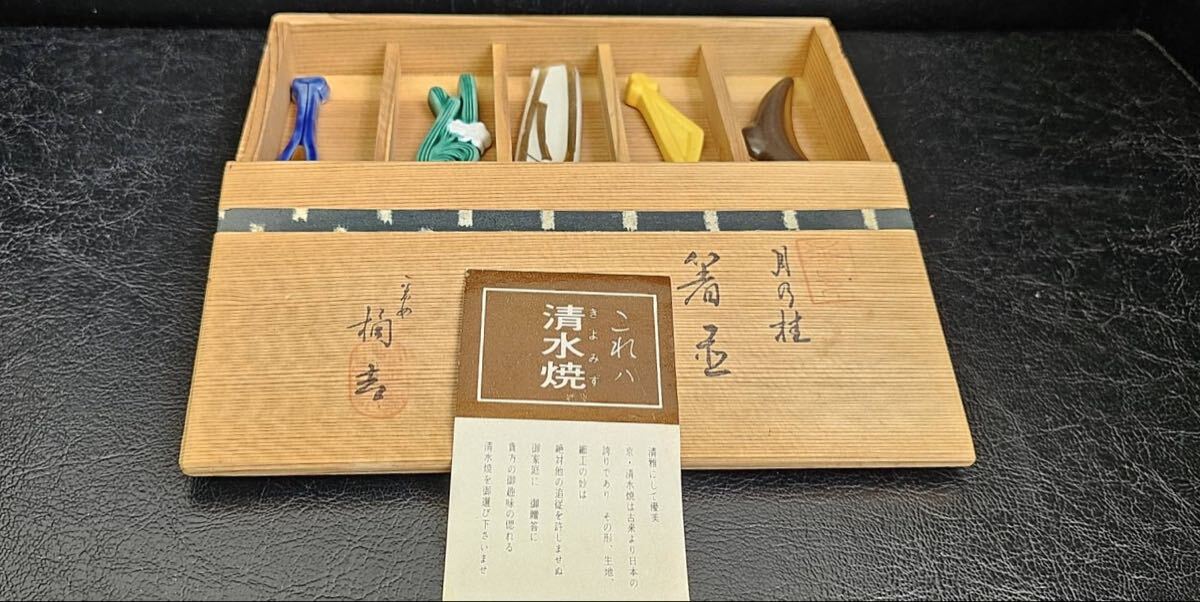 月乃桂
箸置
橘吉
これハ
清水焼
きよみず
清雅にして優美
京・清水焼は古来より日本の
誇りであり その形、生地、
細工の妙は
絶対他の追従を許しませぬ
御家庭に 御贈答に
貴方の御趣味の偲れる
清水焼を御選び下さいませ